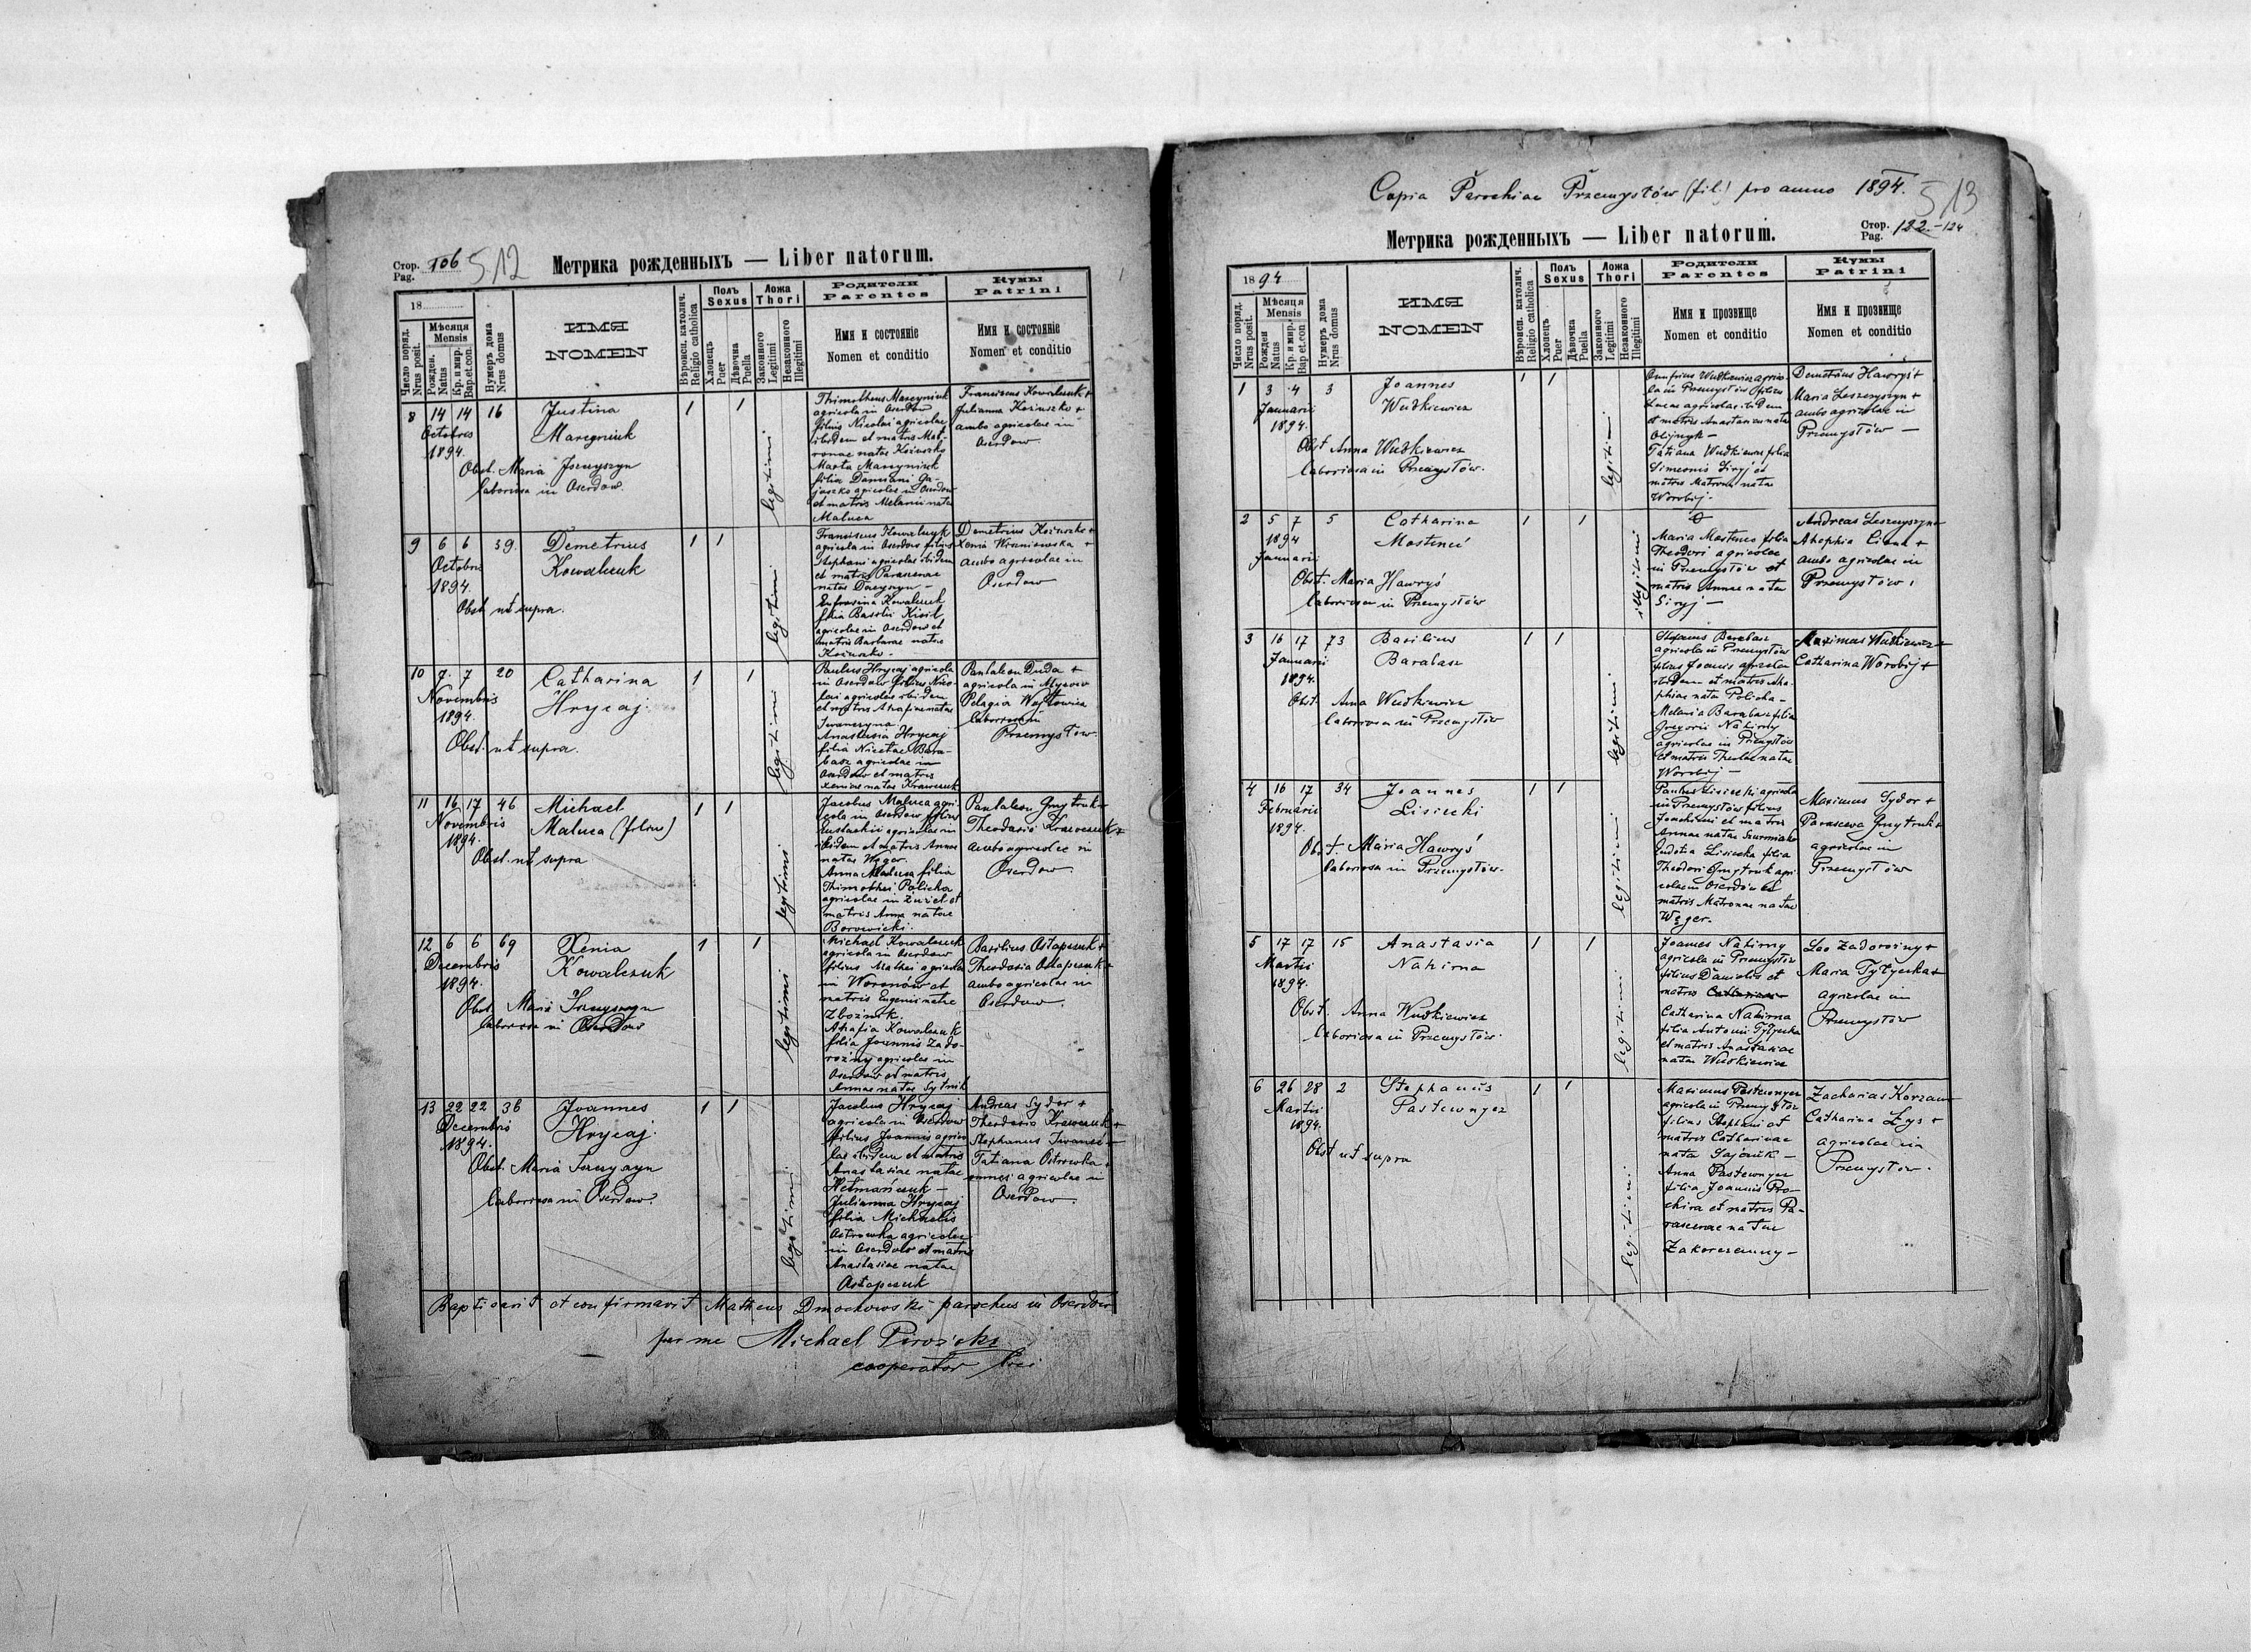 Стор. Pag. 106 512
Метрика рожденныхъ — Liber natorum.
18
Число поряд. Nrus posit.
Мѣсяця Mensis
Рожден. Natus
Кр. и мир. Bap. et. con.
Нумеръ дома Nrus domus
ИМЯ
NOMEN
Вѣроисп. католич. Religio catholica
Полъ Sexus
Хлопецъ Puer
Дѣвочка Puella
Ложа Thori
Законного Legitimi
Незаконного Illegitimi
Родители
Parentes
Имя и состояніе
Nomen et conditio
Кумы
Patrini
Имя и состояніе
Nomen et conditio
8 14 14 16 Justina 1 1
Octobris Marcyniuk
1894.
Obst. Maria
laboriosa in Oserdow.
legitimi
Thimotheus Marcyniuk
agricola in Oserdow
filius Nicolai agricolae
ibidem et matris Mat-
ronae natae Kożuszko
Marta Marcyniuk
filia Damiani Ga-
juszko agricolae in Oserdow
et matris Melanii natae
Maluca
Franciscus Kowalczuk +
Julianna Kożuszko +
ambo agricolae in
Oserdow
9 6 6 39. Demetrius 1 1
Octobris Kowalczuk
1894.
Obst. ut supra.
legitimi
Franciscus Kowalczyk
agricola in Oserdow filius
Stephani agricolae ibidem
et matris Parascevae
natae
Eufrosina Kowalczuk
filia Basilii Kisil
agricolae in Oserdow et
matris Barbarae natae
Kożuszko -
Demetrius Kożuszko +
Xenia Wiszniowska +
ambo agricolae in
Oserdow
10 7. 7 20 Catharina 1 1
Novembris Hrycaj.
1894.
Obst. ut supra.
legitimi
Paulus Hrycaj agricola
in Oserdow filius Nico-
lai agricolae ibidem
et matris Ahafiae natae
Iwanczyna
Anastasia Hrycaj
filia Nicetae Bara-
basz agricolae in
Oserdow et matris
Xeniae natae Krawczuk
Pantaleon Duda +
agricola in Myców
Pelagia Wojtowicz
laboriosa in
Przemysłow.
11 16 17 46 Michael 1 1
Novembris Maluca (filius)
1894.
Obst. ut supra
legitimi
Jacobus Maluca agri-
cola in Oserdow filius
Eustachii agricolae in
ibidem et matris Annae
natae Węger.
Anna Maluca filia
Thimothei Policha
agricolae in Żużel et
matris Anna natae
Borowicki.
Pantaleon Gmytruk +
Theodosia Krawczuk +
ambo agricolae in
Oserdow
12 6 6 69 Xenia 1 1
Decembris Kowalczuk
1894.
Obst. Maria
laboriosa in Oserdow
legitimi
Michael Kowalczuk
agricola in Oserdow
filius Mathei agricolae
in Woronów et
matris Eugenii natae
Zbożnik.
Ahafia Kowalczuk
filia Joannis Zado-
rożny agricolae in
Oserdow et matris
Annae natae Sytnik
Basilius Ostapczuk +
Theodosia Ostapczuk +
ambo agricolae in
Oserdow.
13 22 22 36 Joannes 1 1
Decembris Hrycaj.
1894.
Obst. Maria
laboriosa in Oserdow.
legitimi
Jacobus Hrycaj
agricola in Oserdow
filius Joannis agrico
lae ibidem et matris
Anastasiae natae
Hetmańczuk —
Julianna Hrycaj
filia Michaelis
Ostrowka agricolae
in Oserdow et matris
Anastasiae natae
Ostapczuk
Andreas Sydor +
Theodosia Krawczuk +
Stephanus +
Tatiana Ostrowka +
omnes agricolae in
Oserdow
Baptisavit et confirmavit Matheus Dmochowski parochus in Oserdow
per me Michael
cooperator loci
Copia Parochiae Przemysłów (fil.) pro anno 1894.
513
Метрика рожденныхъ — Liber natorum.
Стор. Pag. 122.-124
1894
Число поряд. Nrus posit.
Мѣсяця Mensis
Рожден Natus
Кр. и мир. Bap. et. con.
Нумеръ дома Nrus domus
ИМЯ
NOMEN
Вѣроисп. католич. Religio catholica
Полъ Sexus
Хлопецъ Puer
Дѣвочка Puella
Ложа Thori
Законного Legitimi
Незаконного Illegitimi
Родители
Parentes
Имя и прозвище
Nomen et conditio
Кумы
Patrini
Имя и прозвище
Nomen et conditio
1 3 4 3 Joannes 1 1
Januarii Wudkiewicz
1894.
Obst Anna Wudkiewicz
laboriosa in Przemysłów.
legitimi
Onufrius Wudkiewicz agrico-
la in Przemysłów filius
Lucae agricolae ibidem
et matris Anastasiae natae
Olijnyk —
Tatiana Wudkiewicz filia
Simeonis Siryj et
matris Matronae natae
Worobij.
Demetrius Hawryś +
Maria Leszczyszyn +
ambo agricolae in
Przemysłów —
2 5 7 5 Catharina 1 1
1894 Mostenci
Januarii
Obst. Maria Hawryś
laboriosa in Przemysłów
illegitimi
Maria Mostenci filia
Theodori agricolae
in Przemysłów et
matris Annae natae
Siryj —
Andreas Leszczyszyn +
Ahaphia +
ambo agricolae in
Przemysłów.
3 16 17 73 Basilius 1 1
Januarii Barabasz
1894.
Obst. Anna Wudkiewicz
laboriosa in Przemysłów
legitimi
Stefanus Barabasz
agricola in Przemysłów
filius Joannis agricolae
ibidem et matris Aha-
phiae natae Policha -
Melania Barabasz filia
Gregorii Nahirny
agricolae in Przemysłów
et matris Theclae natae
Worobij —
Maximus Wudkiewicz +
Catharina Worobij +
4 16 17 34 Joannes 1 1
Februarii Lisiecki
1894.
Obst. Maria Hawryś
laboriosa in Przemysłów.
legitimi
Paulus Lisiecki agricola
in Przemysłów filius
Joachimi et matris
Annae natae
Eudokia Lisiecka filia
Theodori Gmytruk agri
colae in Oserdów et
matris Matronae natae
Węger.
Maximus Sydor +
Parasceva Gmytruk +
agricolae in
Przemysłów
5 17 17 15 Anastasia 1 1
Martii Nahirna
1894.
Obst. Anna Wudkiewicz
laboriosa in Przemysłów.
legitimi
Joannes Nahirny
agricola in Przemysłów
filius Danielis et
matris Catharinae
Catharina Nahirna
filia Antonii Tyżycka
et matris Anastasiae
natae Wudkiewicz
Leo Zadorożny +
Maria Tyżycka +
agricolae in
Przemysłów
6 26 28 2 Stephanus 1 1
Martii Pastewnyez
1894.
Obst ut supra
legitimi
Maximus Pastewnyez
agricola in Przemysłów
filius Stephani et
matris Catharinae
nata Sajczuk —
Anna Pastewnyez
filia Joannis Pro-
chira et matris Pa-
rascevae natae
Zakorczemny —
Zacharias Korzan +
Catharina Lys +
agricolae in
Przemysłów.